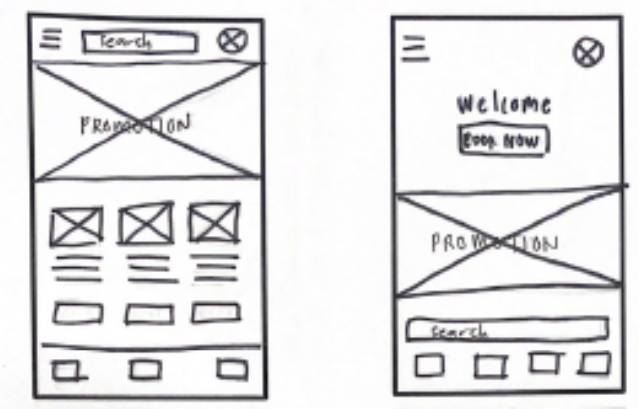 Search
PROMOTION
Welcome
BOOK NOW
PROMOTION
Search